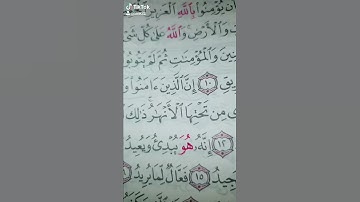 TikTok
أَن يُؤْمِنُوا۟ بِٱللَّهِ ٱلْعَزِيزِ
وَٱلْأَرْضِ وَٱللَّهُ عَلَىٰ كُلِّ شَىْ
نِينَ وَٱلْمُؤْمِنَـٰتِ ثُمَّ لَمْ يَتُوبُوا۟
يقِ ١٠ إِنَّ ٱلَّذِينَ ءَامَنُوا۟ وَ
ى مِن تَحْتِهَا ٱلْأَنْهَـٰرُ ذَٰلِكَ
١٢ إِنَّهُۥ هُوَ يُبْدِئُ وَيُعِيدُ
جِيدُ ١٥ فَعَّالٌ لِّمَا يُرِيدُ